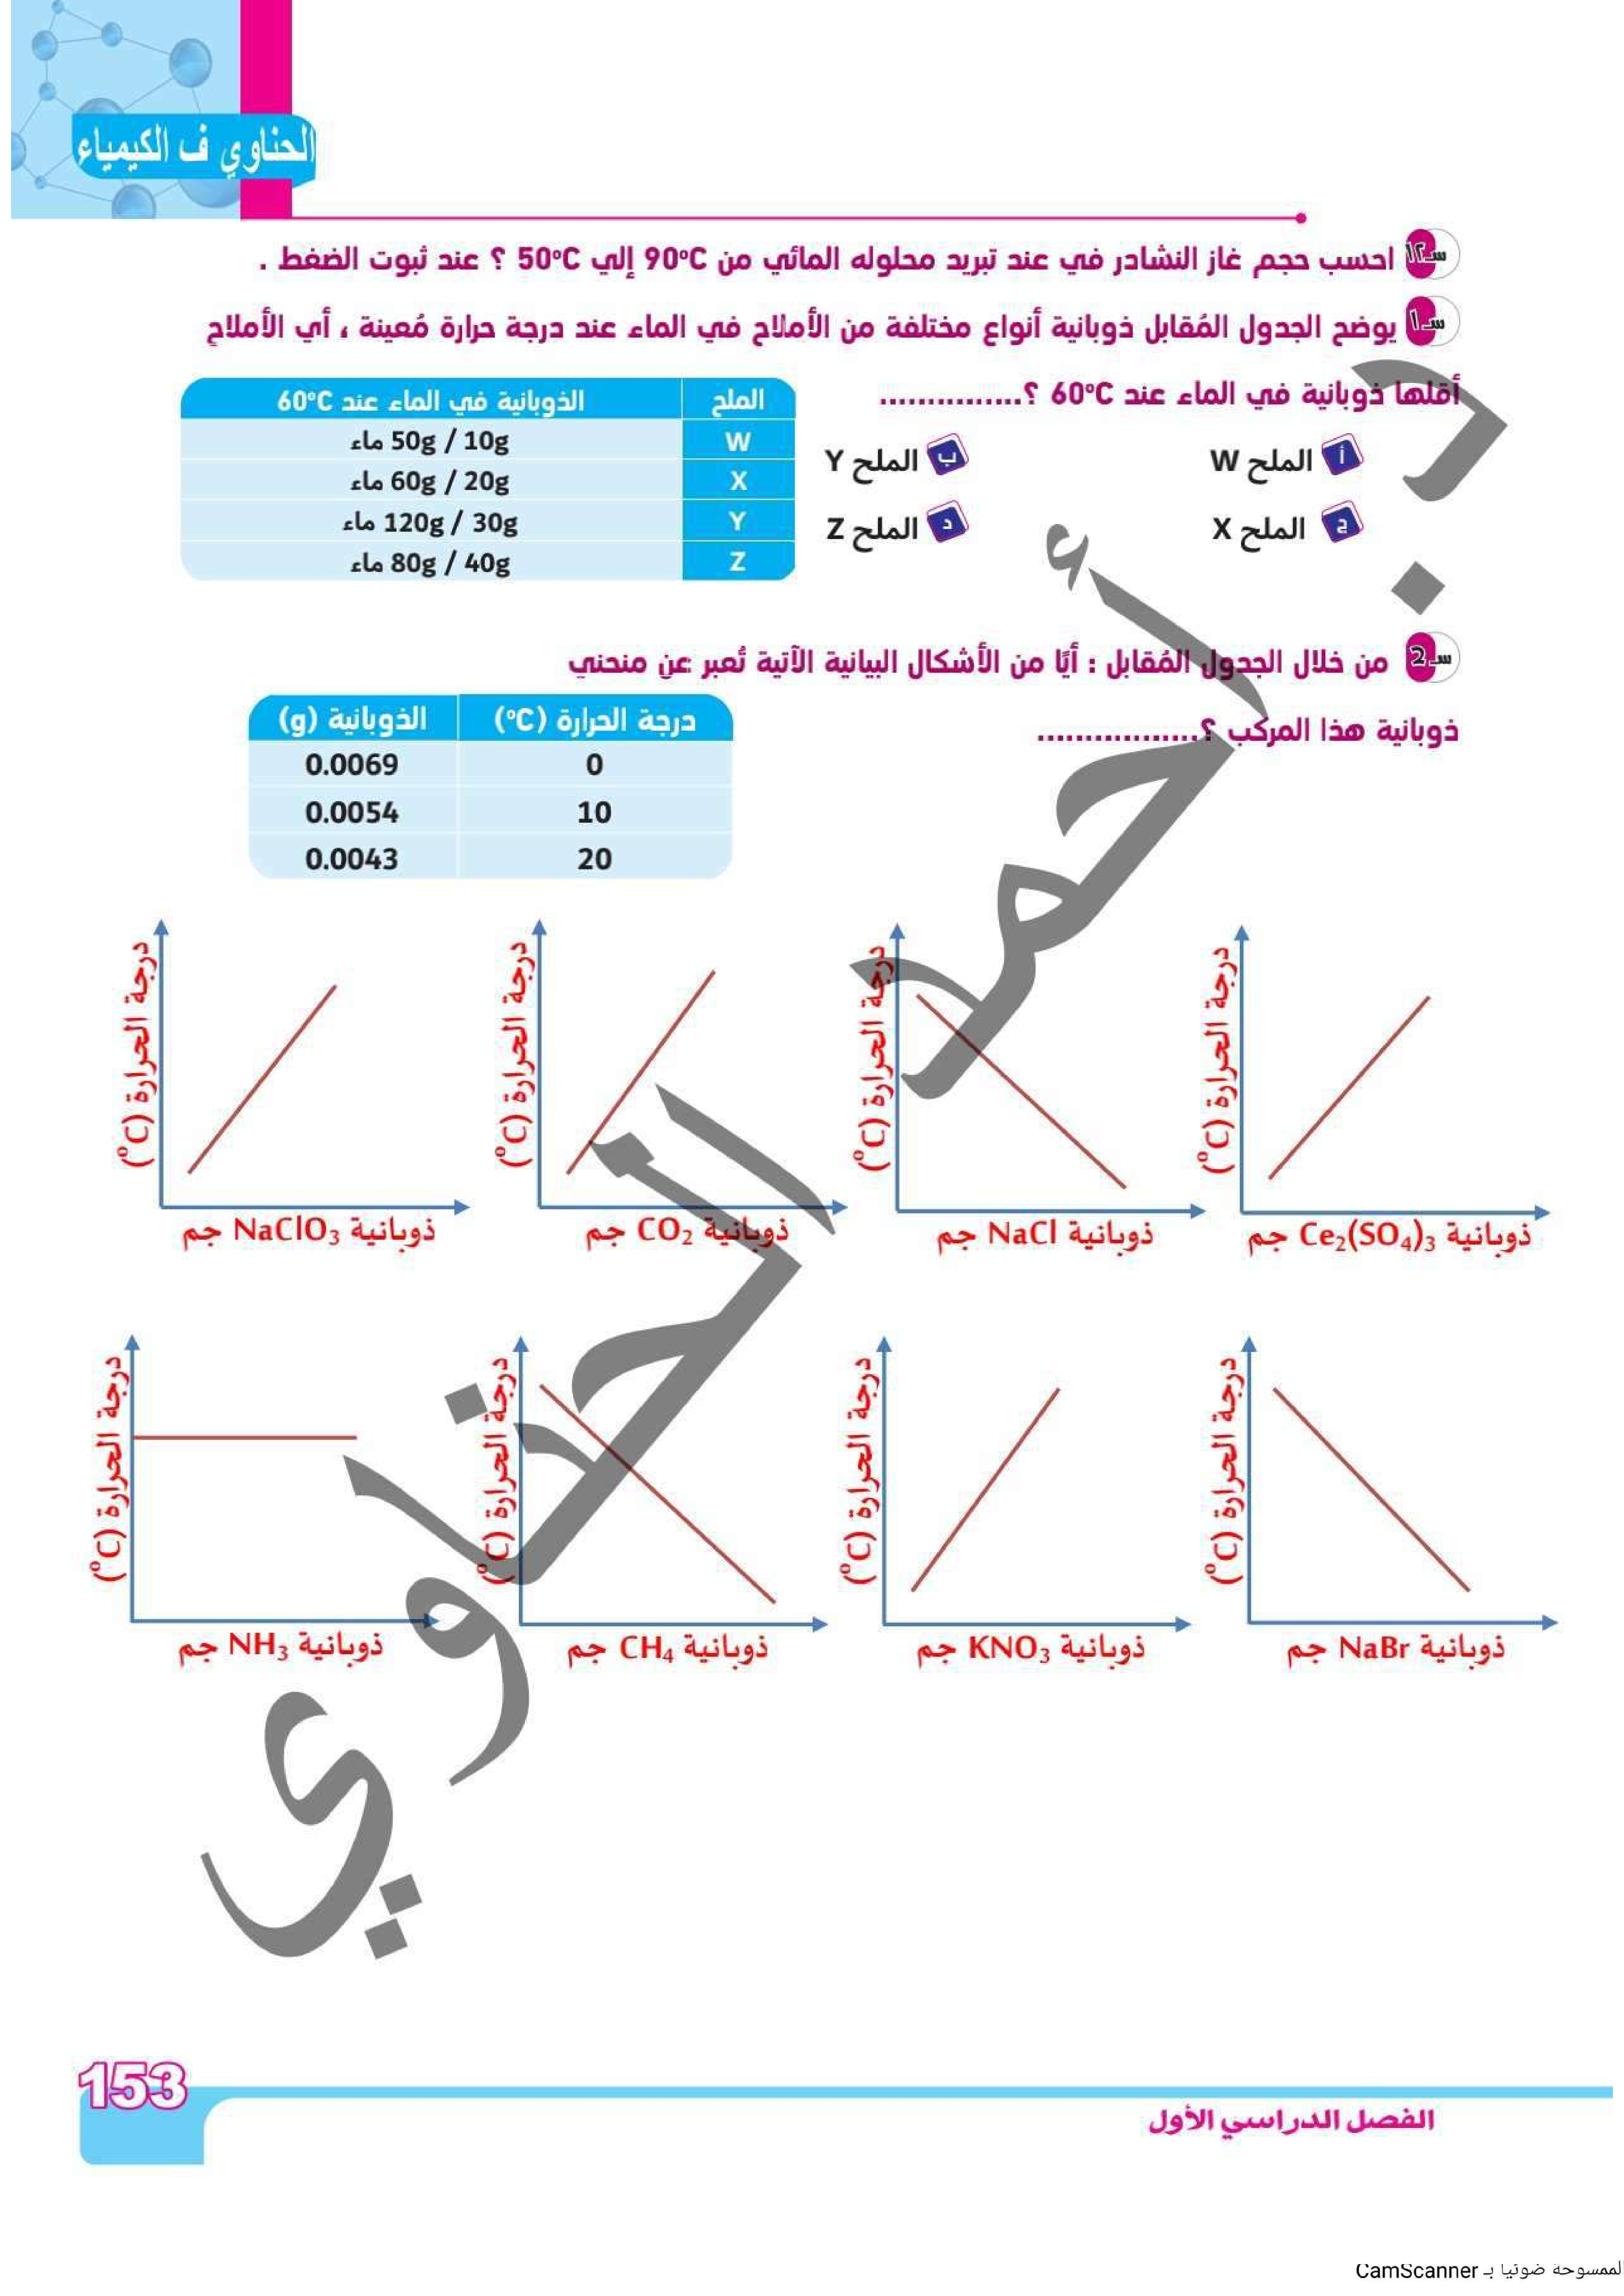 الحناوي ف الكيمياء
سـ١٢ احسب حجم غاز النشادر في عند تبريد محلوله المائي من 90°C إلي 50°C ؟ عند ثبوت الضغط .
سـ1 يوضح الجدول المُقابل ذوبانية أنواع مختلفة من الأملاح في الماء عند درجة حرارة مُعينة ، أي الأملاح
أقلها ذوبانية في الماء عند 60°C ؟...............
أ الملح W
ب الملح Y
ج الملح X
د الملح Z
الملح الذوبانية في الماء عند 60°C
W 50g / 10g ماء
X 60g / 20g ماء
Y 120g / 30g ماء
Z 80g / 40g ماء
سـ2 من خلال الجدول المُقابل : أيًا من الأشكال البيانية الآتية تُعبر عن منحني
ذوبانية هذا المركب ؟.................
درجة الحرارة (°C) الذوبانية (g)
0 0.0069
10 0.0054
20 0.0043
درجة الحرارة (°C)
ذوبانية Ce₂(SO₄)₃ جم
درجة الحرارة (°C)
ذوبانية NaCl جم
درجة الحرارة (°C)
ذوبانية CO₂ جم
درجة الحرارة (°C)
ذوبانية NaClO₃ جم
درجة الحرارة (°C)
ذوبانية NaBr جم
درجة الحرارة (°C)
ذوبانية KNO₃ جم
درجة الحرارة (°C)
ذوبانية CH₄ جم
درجة الحرارة (°C)
ذوبانية NH₃ جم
د. أحمد الحناوي
153
الفصل الدراسي الأول
الممسوحة ضوئيا بـ CamScanner